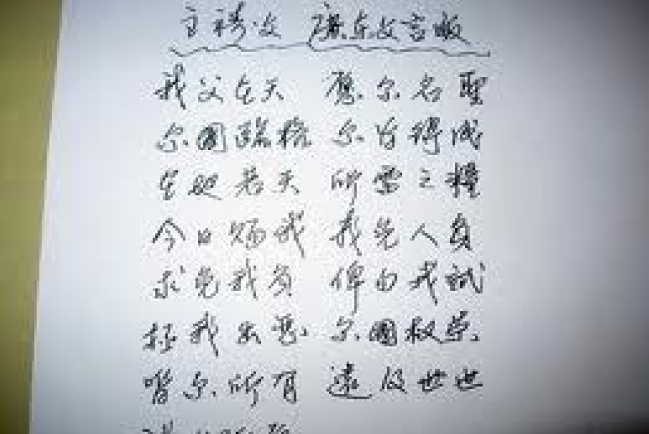 主祷文 广东文言版
我父在天 愿尔名聖
尔國臨格 尔旨得成
在地若天 所需之糧
今日赐我 我免人負
求免我負 俾勿我試
拯我出惡 尔國权荣
皆尔所有 遠及世世